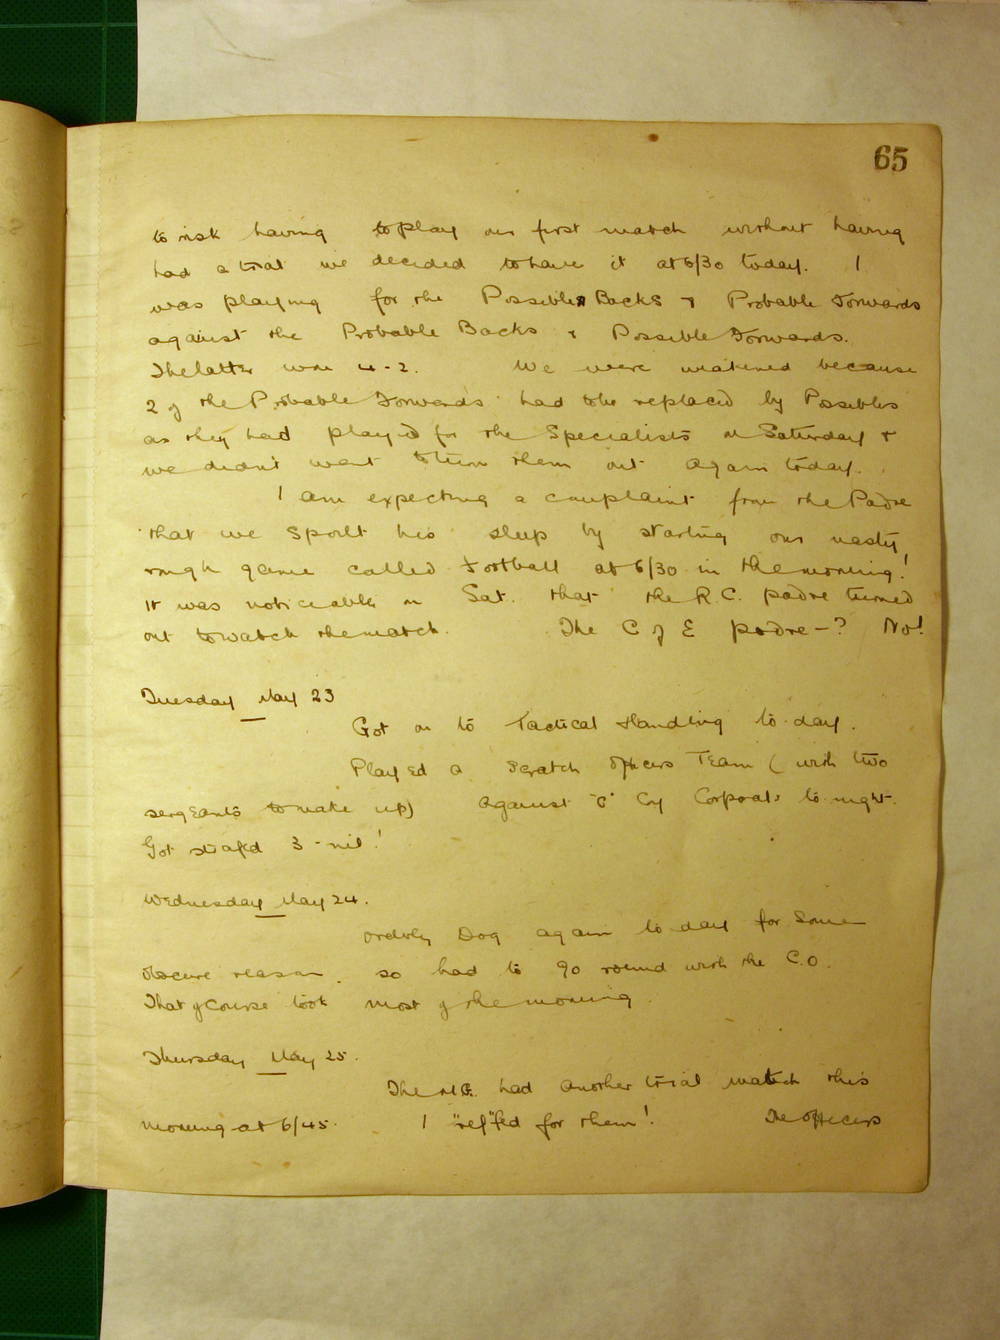 65
to risk having to play our first match without having
had a trial we decided to have it at 6/30 today. I
was playing for the Possible Backs & Probable Forwards
against the Probable Backs & Possible Forwards.
The latter won 4-2. We were weakened because
2 of the Probable Forwards had to be replaced by Possibles
as they had played for the Specialists on Saturday &
we didn't want to turn them out again today.
I am expecting a complaint from the Padre
that we spoilt his sleep by starting our nasty,
rough game called Football at 6/30 in the morning!
It was noticeable on Sat. that the R.C. padre turned
out to watch the match. The C of E padre -? No!
Tuesday May 23
Got on to Tactical Handling to-day.
Played a Scratch Officers Team (with two
sergeants to make up) against "C" Coy Corporals to-night.
Got strafed 3-nil!
Wednesday May 24.
Orderly Dog again to-day for some
obscure reason, so had to go round with the C.O.
That of course took most of the morning.
Thursday May 25.
The M.G. had another trial match this
morning at 6/45. I "ref"fed for them! The officers